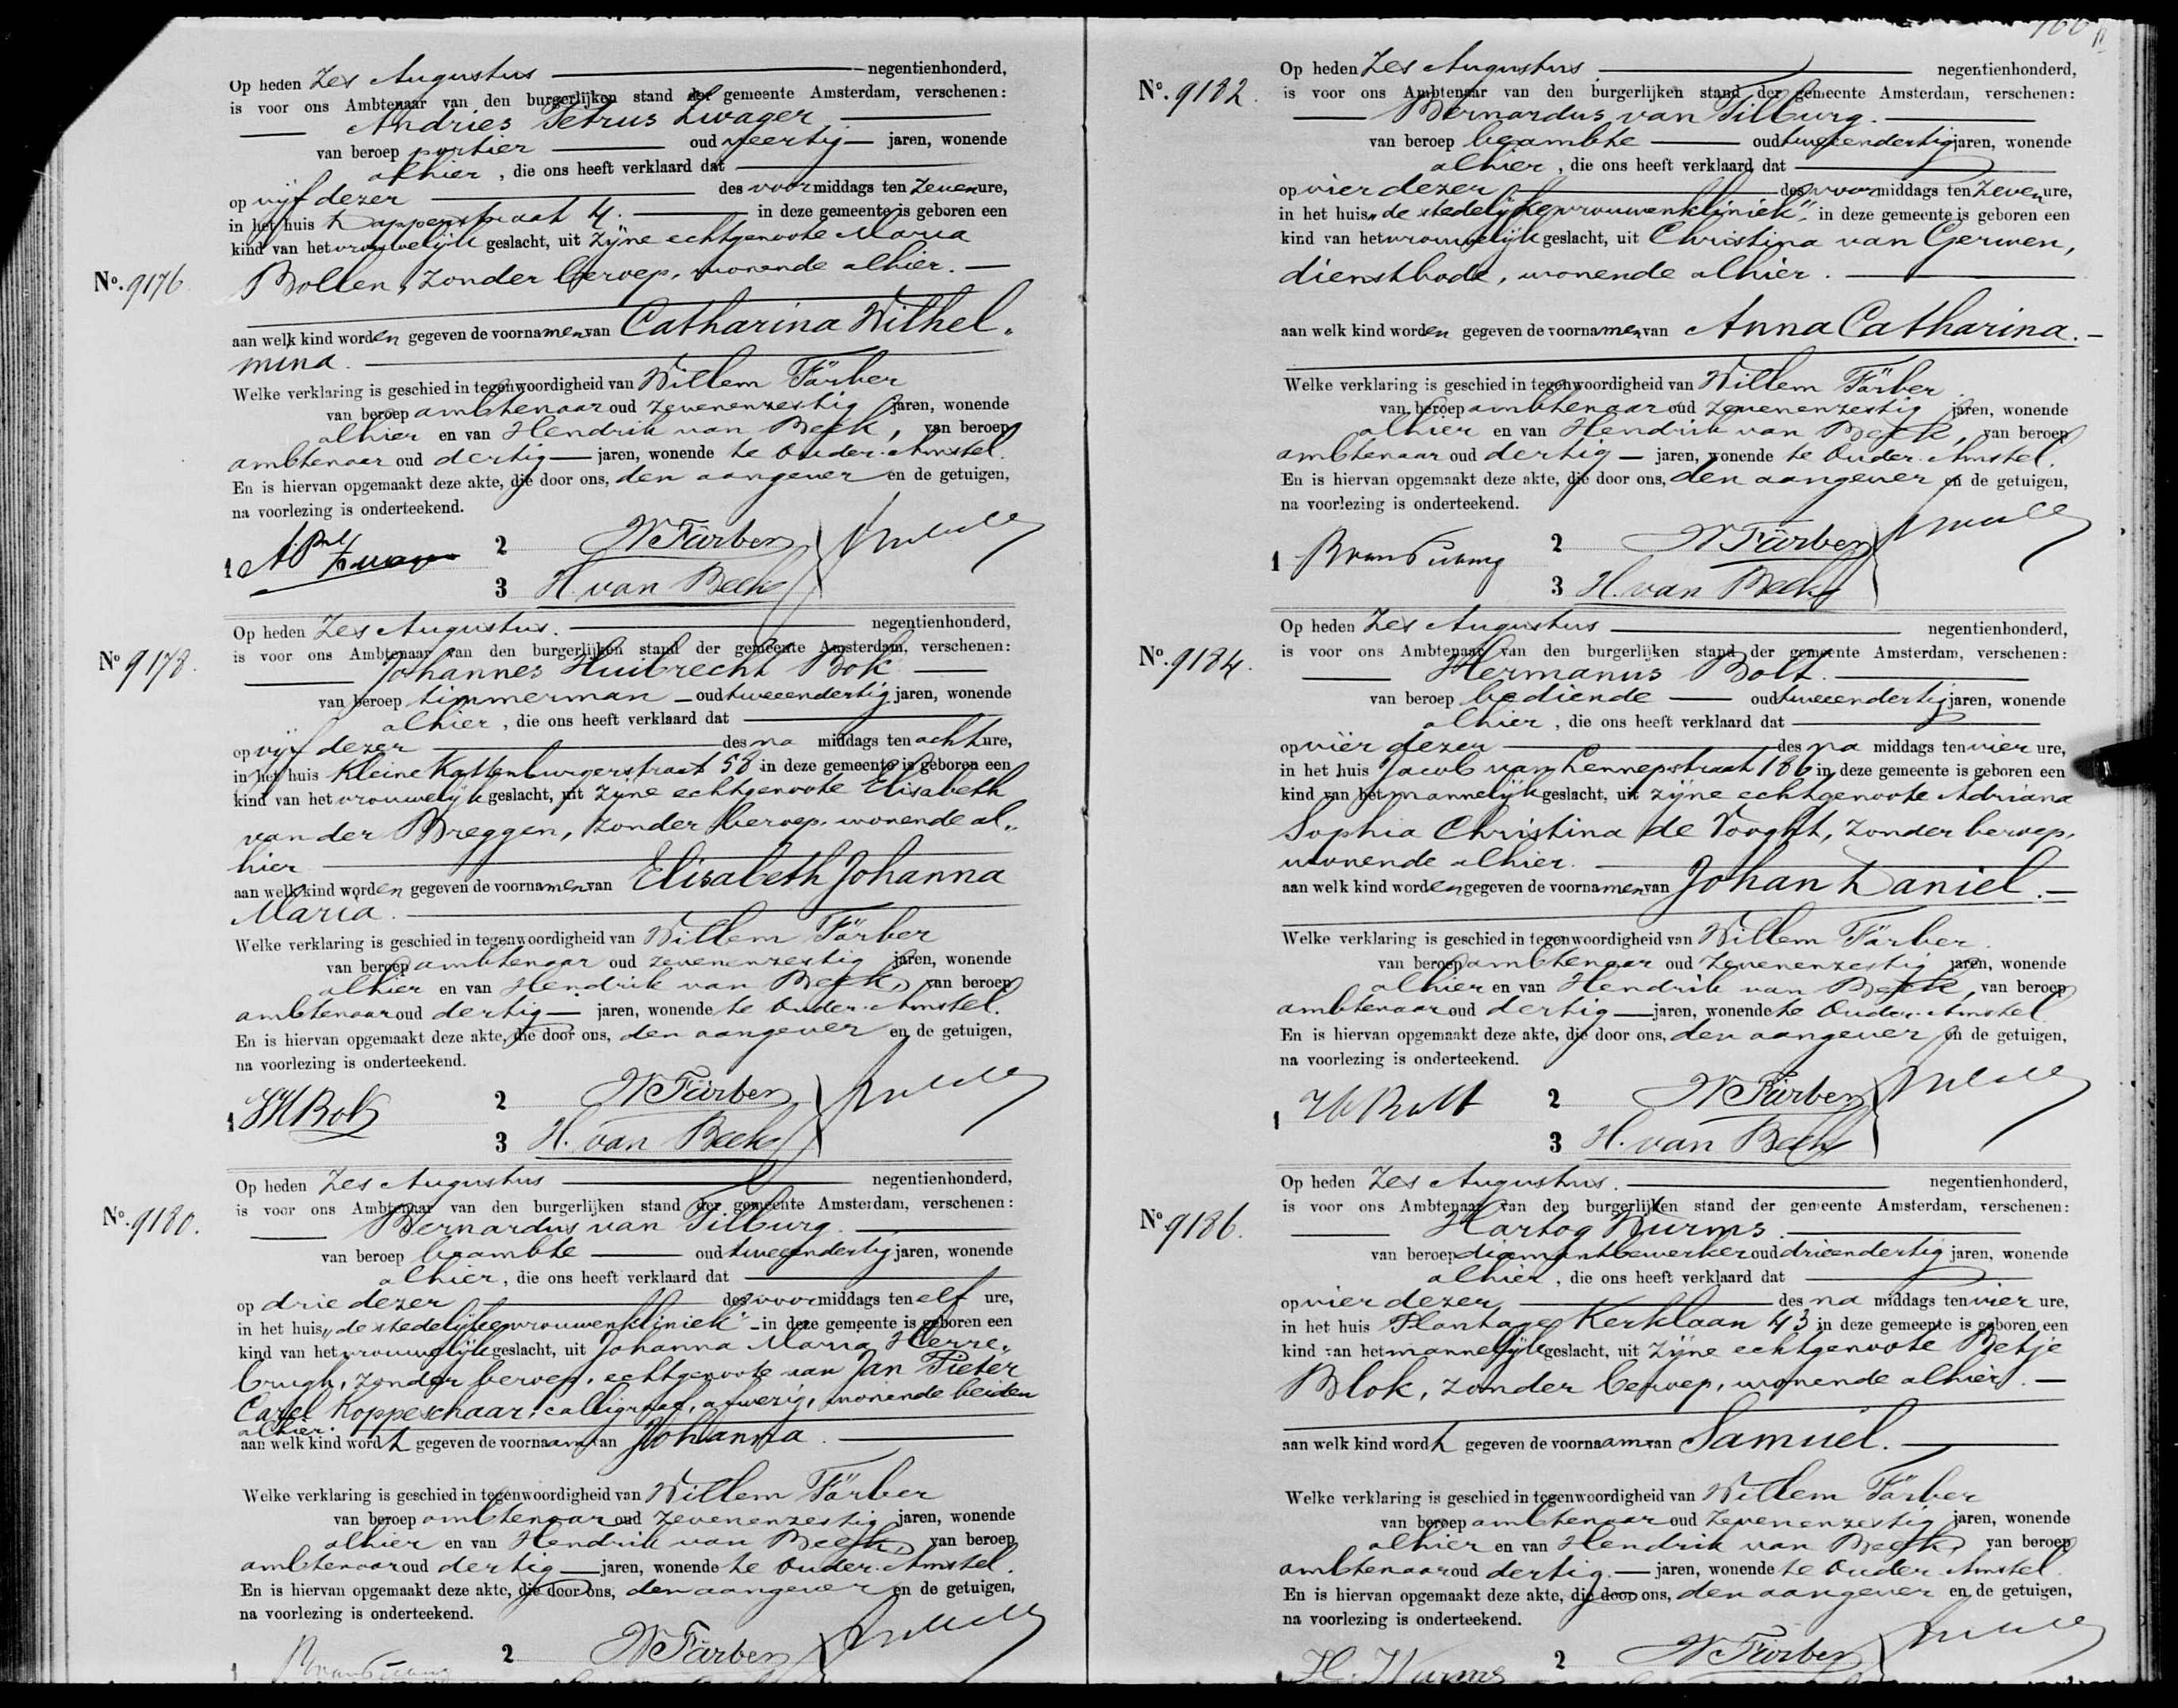 Op heden Zes Augustus negentienhonderd,
is voor ons Ambtenaar van den burgerlijken stand der gemeente Amsterdam, verschenen:
Andries Petrus Zwager
van beroep portier oud veertig jaren, wonende
alhier, die ons heeft verklaard dat
op vijf dezer des voormiddags ten zeven ure,
in het huis Dapperstraat 4. in deze gemeente is geboren een
kind van het vrouwelijk geslacht, uit zijne echtgenoote Maria
No. 9176
Bollen, zonder beroep, wonende alhier.
aan welk kind worden gegeven de voornamen van Catharina Wilhel„
mina.
Welke verklaring is geschied in tegenwoordigheid van Willem Färber
van beroep ambtenaar oud zevenenzestig jaren, wonende
alhier en van Hendrik van Beek, van beroep
ambtenaar oud dertig jaren, wonende te Ouder-Amstel.
En is hiervan opgemaakt deze akte, die door ons, den aangever en de getuigen,
na voorlezing is onderteekend.
1 2 W Färber
3 H. van Beek
Op heden Zes Augustus. negentienhonderd,
No 9178.
is voor ons Ambtenaar van den burgerlijken stand der gemeente Amsterdam, verschenen:
Johannes Huibrecht Bok
van beroep timmerman oud tweeendertig jaren, wonende
alhier, die ons heeft verklaard dat
op vijf dezer des na middags ten acht ure,
in het huis Kleine Kattenburgerstraat 58 in deze gemeente is geboren een
kind van het vrouwelijk geslacht, uit zijne echtgenoote Elisabeth
van der Breggen, zonder beroep, wonende al„
hier
aan welk kind worden gegeven de voornamen van Elisabeth Johanna
Maria.
Welke verklaring is geschied in tegenwoordigheid van Willem Färber
van beroep ambtenaar oud zevenenzestig jaren, wonende
alhier en van Hendrik van Beek, van beroep
ambtenaar oud dertig jaren, wonende te Ouder-Amstel.
En is hiervan opgemaakt deze akte, die door ons, den aangever en de getuigen,
na voorlezing is onderteekend.
1 JH Bok 2 W Färber
3 H. van Beek
Op heden Zes Augustus negentienhonderd,
No. 9180.
is voor ons Ambtenaar van den burgerlijken stand der gemeente Amsterdam, verschenen:
Bernardus van Tilburg.
van beroep beambte oud tweeendertig jaren, wonende
alhier, die ons heeft verklaard dat
op drie dezer des voormiddags ten elf ure,
in het huis „de stedelijke vrouwenkliniek" in deze gemeente is geboren een
kind van het vrouwelijk geslacht, uit Johanna Maria Herre„
brugh, zonder beroep, echtgenoote van Jan Pieter
Carel Koppeschaar, calligraaf, afwezig, wonende beiden
alhier.
aan welk kind wordt gegeven de voornaam van Johanna.
Welke verklaring is geschied in tegenwoordigheid van Willem Färber
van beroep ambtenaar oud zevenenzestig jaren, wonende
alhier en van Hendrik van Beek, van beroep
ambtenaar oud dertig jaren, wonende te Ouder-Amstel.
En is hiervan opgemaakt deze akte, die door ons, den aangever en de getuigen,
na voorlezing is onderteekend.
1 2 W Färber
Op heden Zes Augustus negentienhonderd,
No. 9182.
is voor ons Ambtenaar van den burgerlijken stand der gemeente Amsterdam, verschenen:
Bernardus van Tilburg.
van beroep beambte oud tweeendertig jaren, wonende
alhier, die ons heeft verklaard dat
op vier dezer des voormiddags ten zeven ure,
in het huis „de stedelijke vrouwenkliniek", in deze gemeente is geboren een
kind van het vrouwelijk geslacht, uit Christina van Gerwen,
dienstbode, wonende alhier.
aan welk kind worden gegeven de voornamen van Anna Catharina.
Welke verklaring is geschied in tegenwoordigheid van Willem Färber
van beroep ambtenaar oud zevenenzestig jaren, wonende
alhier en van Hendrik van Beek, van beroep
ambtenaar oud dertig jaren, wonende te Ouder-Amstel.
En is hiervan opgemaakt deze akte, die door ons, den aangever en de getuigen,
na voorlezing is onderteekend.
1 2 W Färber
3 H. van Beek
Op heden Zes Augustus negentienhonderd,
No. 9184.
is voor ons Ambtenaar van den burgerlijken stand der gemeente Amsterdam, verschenen:
Hermanus Bolt.
van beroep bediende oud tweeendertig jaren, wonende
alhier, die ons heeft verklaard dat
op vier dezer des na middags ten vier ure,
in het huis Jacob van Lennepstraat 186 in deze gemeente is geboren een
kind van het mannelijk geslacht, uit zijne echtgenoote Adriana
Sophia Christina de Vooght, zonder beroep,
wonende alhier.
aan welk kind worden gegeven de voornamen van Johan Daniel.
Welke verklaring is geschied in tegenwoordigheid van Willem Färber
van beroep ambtenaar oud zevenenzestig jaren, wonende
alhier en van Hendrik van Beek, van beroep
ambtenaar oud dertig jaren, wonende te Ouder-Amstel
En is hiervan opgemaakt deze akte, die door ons, den aangever en de getuigen,
na voorlezing is onderteekend.
1 H Bolt 2 W Färber
3 H. van Beek
Op heden Zes Augustus. negentienhonderd,
No. 9186.
is voor ons Ambtenaar van den burgerlijken stand der gemeente Amsterdam, verschenen:
Hartog Wurms
van beroep diamantbewerker oud drieendertig jaren, wonende
alhier, die ons heeft verklaard dat
op vier dezer des na middags ten vier ure,
in het huis Plantage Kerklaan 43 in deze gemeente is geboren een
kind van het mannelijk geslacht, uit zijne echtgenoote Betje
Blok, zonder beroep, wonende alhier.
aan welk kind wordt gegeven de voornaam van Samuël.
Welke verklaring is geschied in tegenwoordigheid van Willem Färber
van beroep ambtenaar oud zevenenzestig jaren, wonende
alhier en van Hendrik van Beek, van beroep
ambtenaar oud dertig. jaren, wonende te Ouder-Amstel
En is hiervan opgemaakt deze akte, die door ons, den aangever en de getuigen,
na voorlezing is onderteekend.
1 H. Wurms 2 W Färber